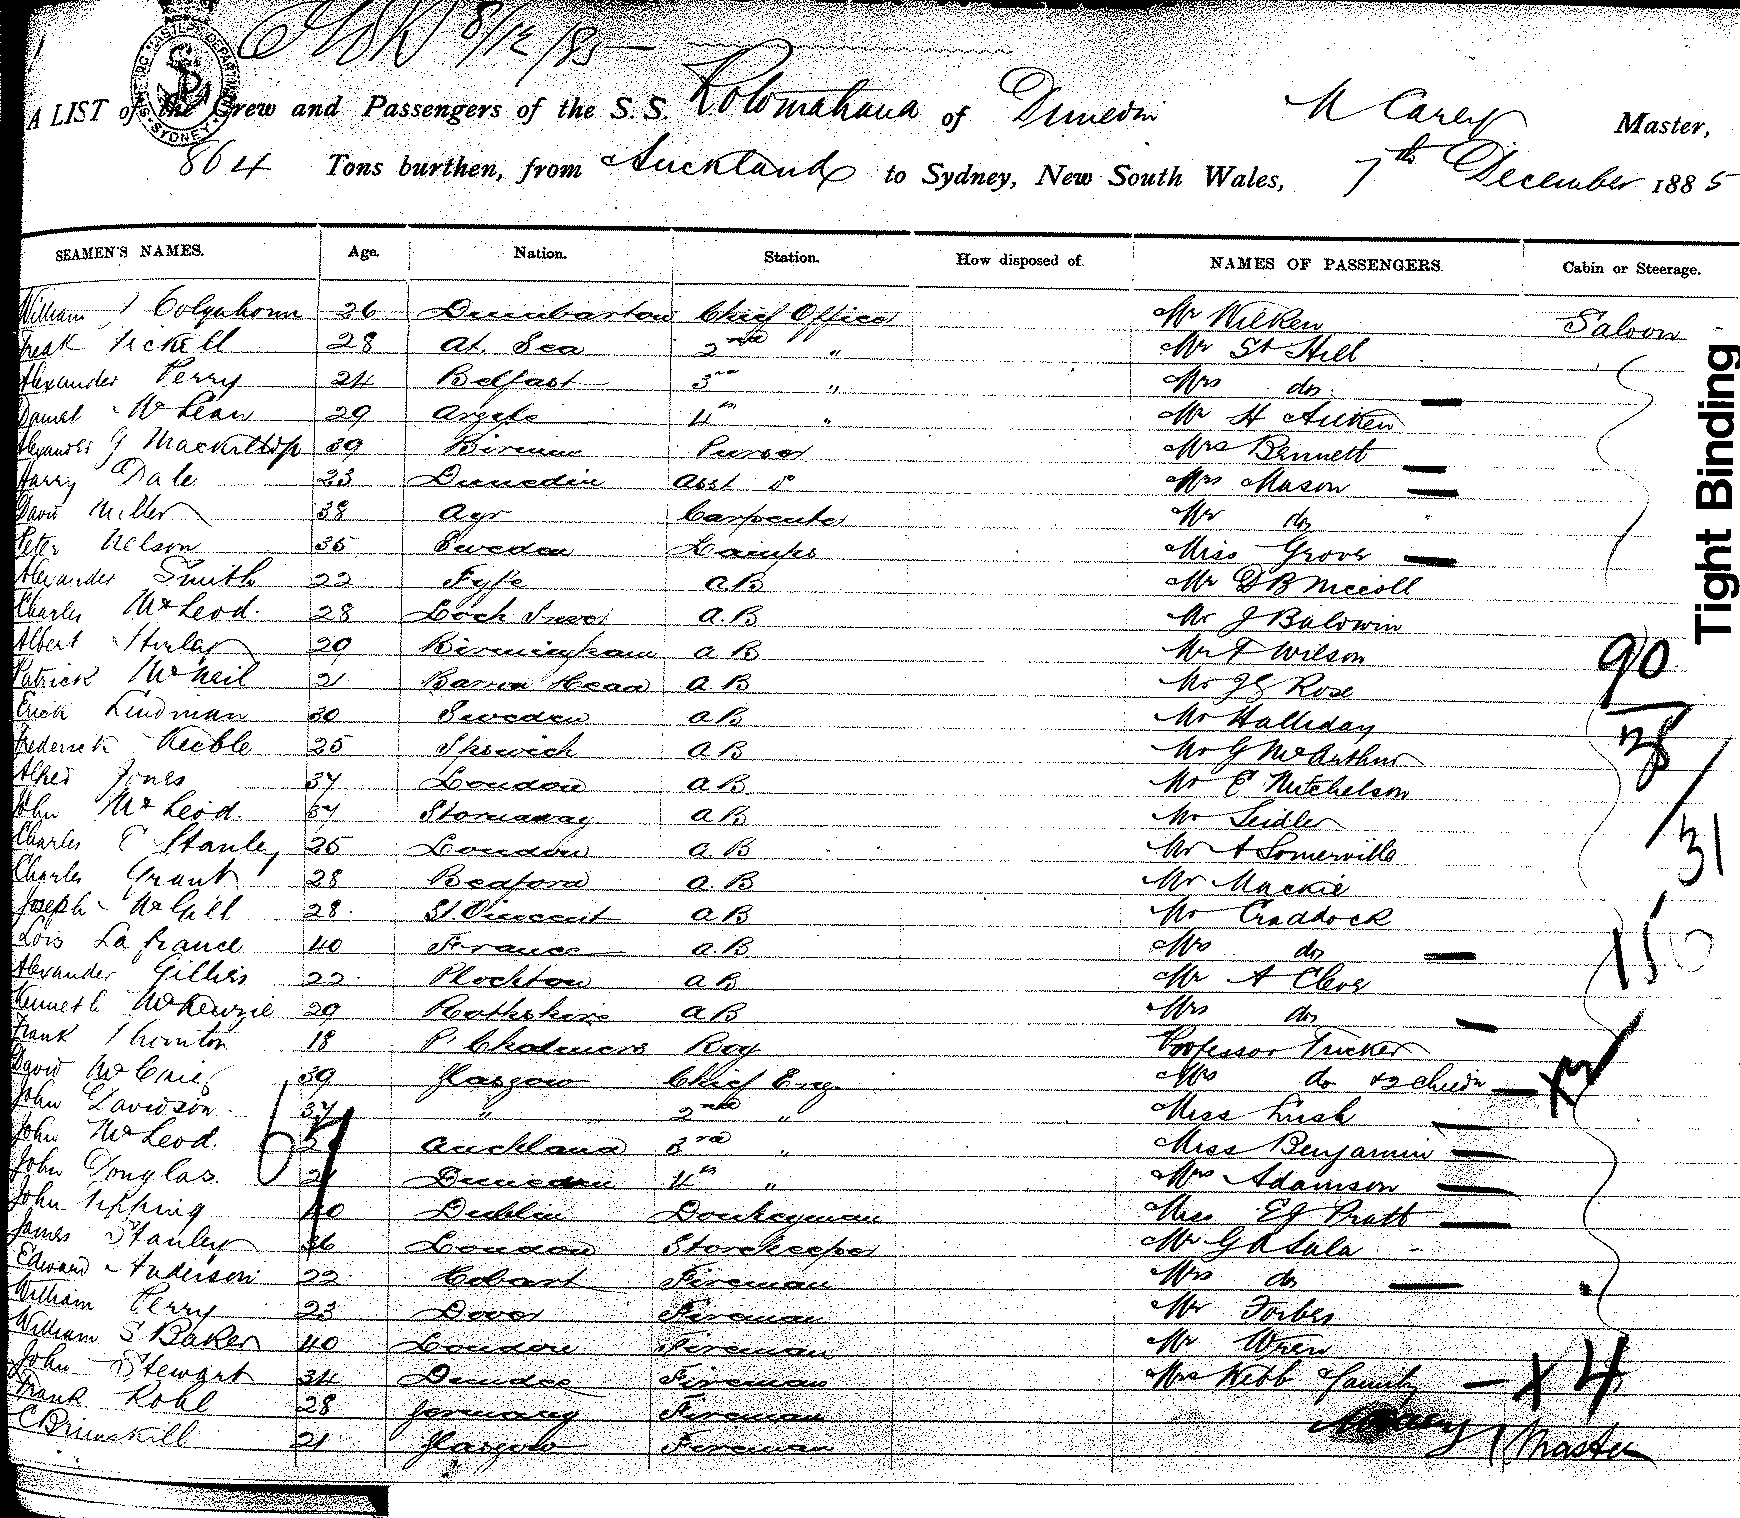 8/12/85
A LIST of the Crew and Passengers of the S.S. Rotomahana of Dunedin M Carey Master,
864 Tons burthen, from Auckland to Sydney, New South Wales, 7th December 1885
SEAMEN'S NAMES. Age. Nation. Station. How disposed of. NAMES OF PASSENGERS. Cabin or Steerage.
William J Colquhoun 26 Dumbarton Chief Officer Mr Wilken Saloon
Fredk Tickell 28 At Sea 2nd " Mr St Hill
Alexander Perry 24 Belfast 3rd " Mrs do
Daniel McLean 29 Argyle 4th " Mr H Aitken
Alexander G Mackillop 39 Purser Mrs Bennett
Harry Dale 23 Dunedin Asst do Mrs Mason
David Miller 38 Ayr Carpenter Mr do
Peter Nelson 35 Sweden Lamps Miss Grover
Alexander Smith 22 Fyfe A.B Mr D B McColl
Charles McLeod. 28 Loch A.B Mr J Baldwin
Albert 29 Birmingham A B Mr F Wilson
Patrick McNeil 21 Barra Head A B Mr J G Rose
Erick Lindman 30 Sweden A B Mr Halliday
Frederick Keeble 25 Ipswich A B Mr G McArthur
Alfred Jones 37 London A B Mr E Mitchelson
John McLeod. 37 Stornaway A B Mr Seidler
Charles E Stanley 25 London A.B Mr A Somerville
Charles Grant 28 Bedford A.B Mr Mackie
Joseph McGill 28 St Vincent A B Mr Craddock
Lois Lafrance 40 France A.B Mrs do
Alexander Gillies 22 Plockton A B Mr A Cleve
Kenneth McKenzie 29 Rothshire A B Mrs do
Frank Thornton 18 P. Chalmers Boy Professor Tucker
David 39 Glasgow Chief Eng. Mrs do & 2 Children
John Davidson. 37 " 2nd " Miss Lush
John McLeod. Auckland 3rd " Miss Benjamin
John Douglas. Dunedin 4th " Mrs Adamson
John Tipping 40 Dublin Donkeyman Miss E J Pratt
James Stanley 36 London Storekeeper Mr G A Sala
Edward Anderson 22 Hobart Fireman Mrs do
William Perry 23 Dover Fireman Mr Forbes
William S Baker 40 London Fireman Mr Wren
John Stewart 34 Dundee Fireman Mrs Kibb family x4
Frank Kohl 28 Germany Fireman
C Brunskill 21 Glasgow Fireman M Carey Master
Tight Binding
90
31
150